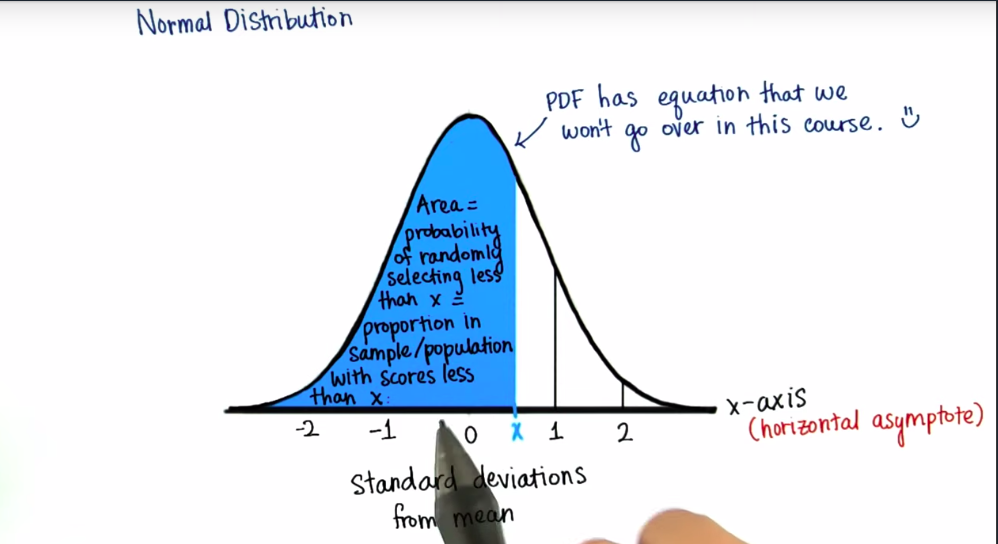 Normal Distribution
PDF has equation that we
won't go over in this course.
Area =
probability
of randomly
selecting less
than x =
proportion in
sample/population
with scores less
than x.
x-axis
(horizontal asymptote)
-2 -1 0 x 1 2
Standard deviations
from mean